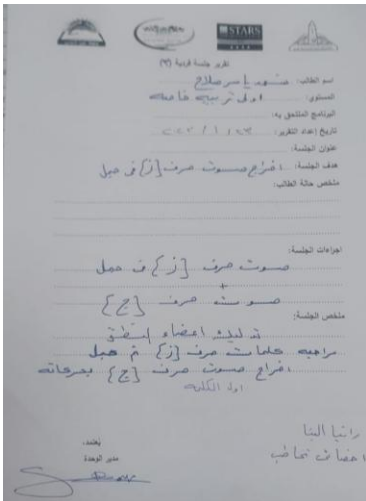 STARS
تقرير جلسة فردية (٣)
اسم الطالب: ياسر صلاح
المستوى: اولى تربيه خاصه
البرنامج الملتحق به:
تاريخ إعداد التقرير:
عنوان الجلسة:
هدف الجلسة: اخراج صوت حرف {ز} فى جمل
ملخص حالة الطالب:
اجراءات الجلسة:
صوت حرف {ز} فى جمل
+
صوت حرف {ج}
ملخص الجلسة:
تدليك اعضاء النطق
مراجعه كلمات حرف {ز} ثم جمل
اخراج صوت حرف {ج} بحركاته
اول الكلمه
رانيا البنا
اخصائى تخاطب
يُعتمد،
مدير الوحدة